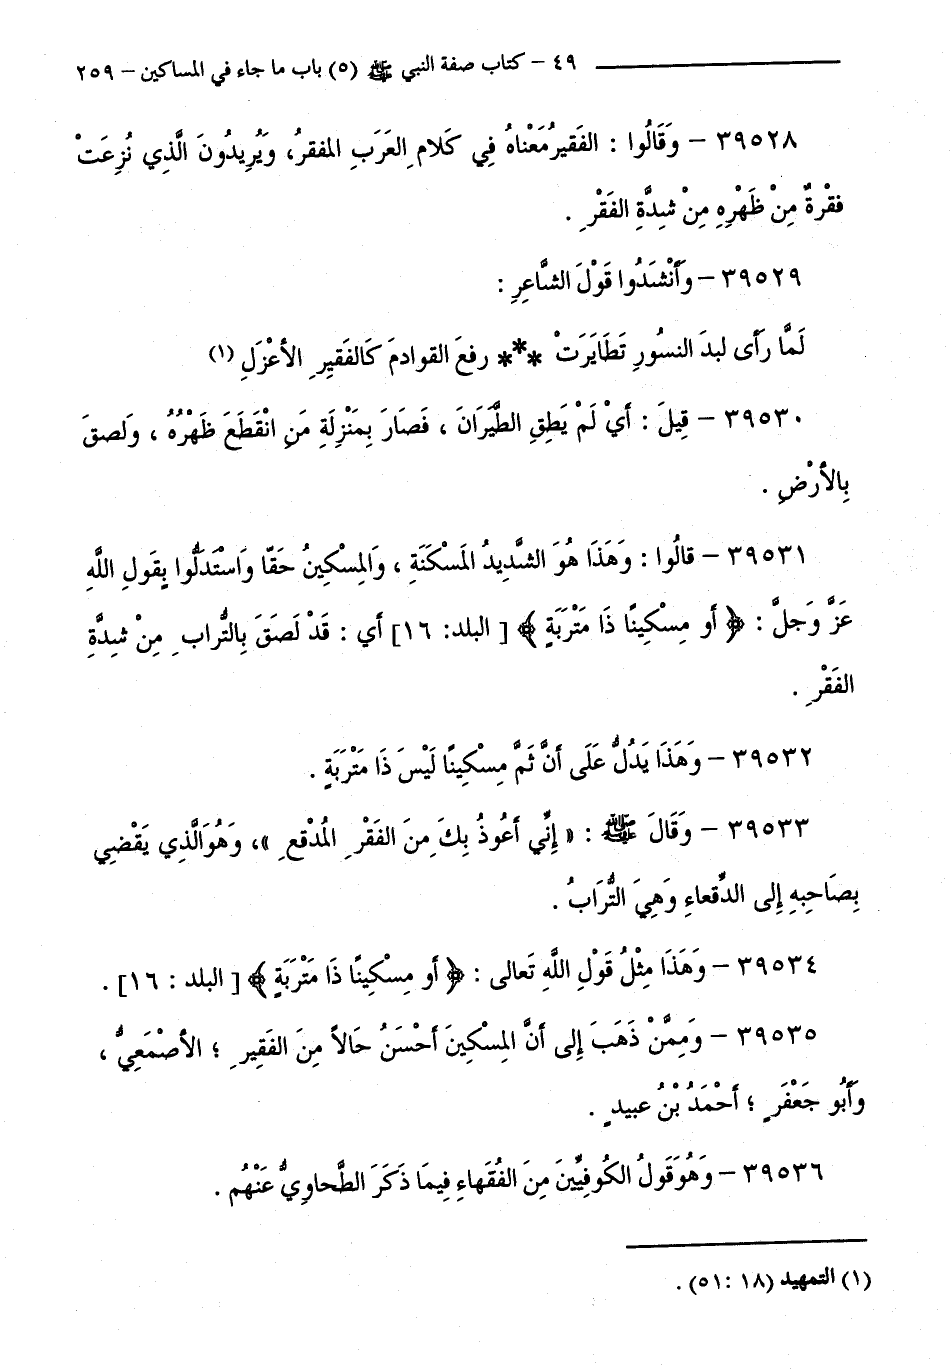 ٤٩ – كتاب صفة النبي ﷺ (٥) باب ما جاء في المساكين – ٢٥٩
٣٩٥٢٨ – وَقَالُوا : الفَقيرُ مَعْناهُ فِي كَلامِ العَرَبِ المفقرُ، وَيُرِيدُونَ الَّذِي نُزِعَتْ
فقْرةٌ مِنْ ظَهْرِهِ مِنْ شِدَّةِ الفَقْرِ .
٣٩٥٢٩ – وَأَنْشَدُوا قَوْلَ الشَّاعِرِ :
لَمَّا رَأى لبدَ النسُورِ تَطَايَرَتْ *** رفعَ القوادمَ كَالفَقيِرِ الأعْزَلِ (١)
٣٩٥٣٠ – قِيلَ : أيْ لَمْ يَطِقِ الطَّيَرَانَ ، فَصَارَ بِمَنْزِلَةِ مَنِ انْقَطَعَ ظَهْرُهُ ، وَلصقَ
بِالأرْضِ .
٣٩٥٣١ – قالُوا : وَهَذَا هُوَ الشَّدِيدُ المَسْكَنَةِ ، وَالمِسْكِينُ حَقّا وَاسْتَدَلُّوا بِقَولِ اللَّهِ
عَزَّ وَجَلَّ : ﴿ أو مِسْكِينًا ذَا مَتْرَبَةٍ ﴾ [ البلد: ١٦] أي : قَدْ لَصَقَ بِالتُّرابِ مِنْ شِدَّةِ
الفَقْرِ .
٣٩٥٣٢ – وَهَذَا يَدُلُّ عَلَى أنَّ ثَمَّ مِسْكِينًا لَيْسَ ذَا مَتْرَبَةٍ .
٣٩٥٣٣ – وَقَالَ ﷺ : « إِنِّي أعُوذُ بِكَ مِنَ الفَقْرِ المُدْقعِ »، وَهُوَ الَّذِي يَقْضِي
بِصَاحِبِهِ إِلى الدَّقعاءِ وَهِيَ التُّرَابُ .
٣٩٥٣٤ – وَهَذَا مِثْلُ قَوْلِ اللَّهِ تَعالى : ﴿ أو مِسْكِينًا ذَا مَتْرَبَةٍ ﴾ [ البلد : ١٦] .
٣٩٥٣٥ – وَمِمَّنْ ذَهَبَ إِلى أنَّ المِسْكِينَ أحْسَنُ حَالاً مِنَ الفَقِيرِ ؛ الأصْمَعِيُّ ،
وَأَبُو جَعْفَرٍ ؛ أحْمَدُ بْنُ عبيدٍ .
٣٩٥٣٦ – وَهُوَ قَولُ الكُوفِيِّينَ مِنَ الفُقَهاءِ فِيمَا ذَكَرَ الطَّحاوِيُّ عَنْهُم .
(١) التمهيد (١٨ :٥١) .